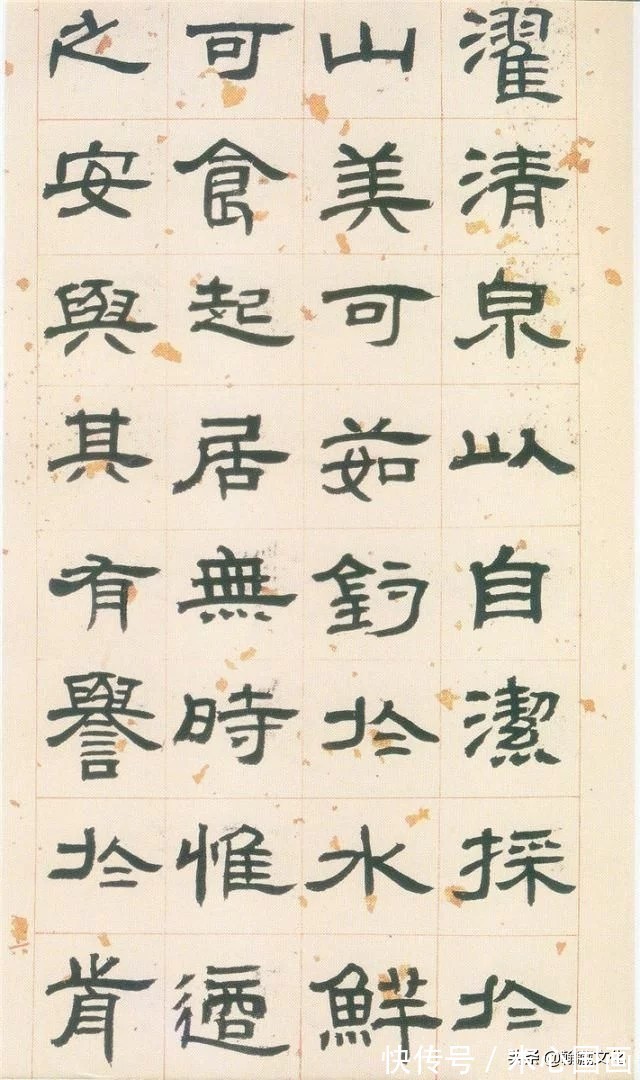 濯清泉以自潔採於
山美可茹釣於水鮮
可食起居無時惟適
之安與其有譽於前
快传号